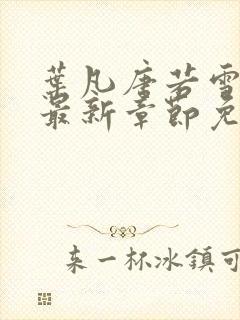 葉凡唐若雪
最新章節免
来一杯冰鎮可